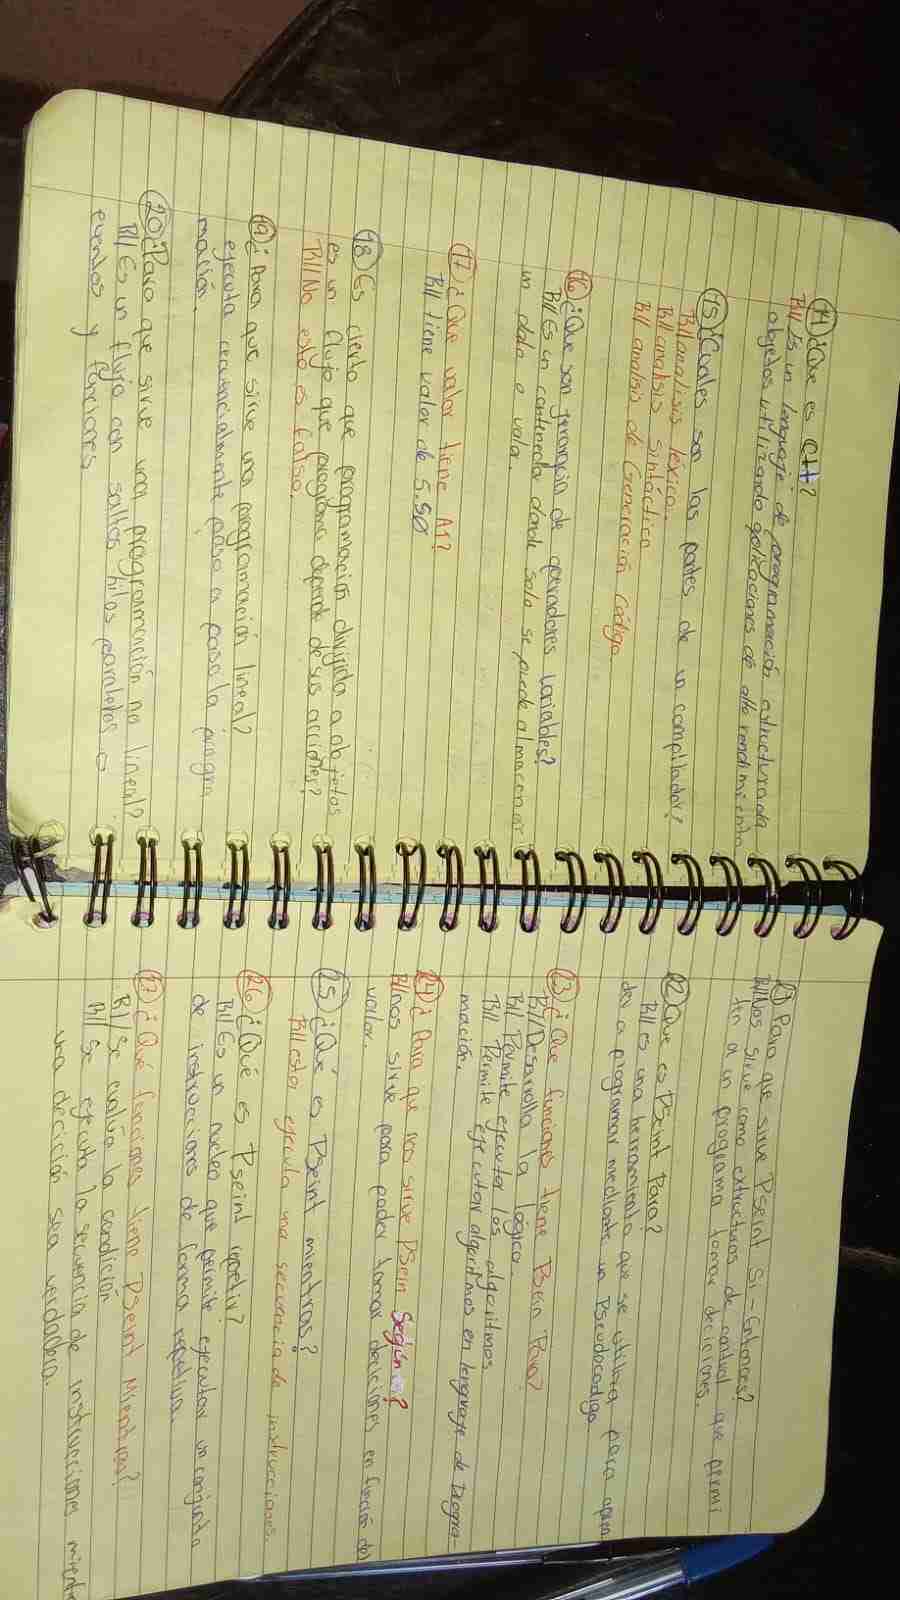 14 ¿Que es C++?
R// Es un lenguaje de programación estructurada
objetos utilizando aplicaciones de alto rendimiento
15 ¿Cuales son las partes de un compilador?
R// analisis léxico.
R// analisis sintáctico
R// analisis de Generación código
16 ¿Que son jerarquia de operadores variables?
R// Es un contenedor donde solo se puede almacenar
un dato o valor.
17 ¿Que valor tiene A1?
R// tiene valor de 5.50
18 Es cierto que programación dirigida a objetos
es un flujo que programa depende de sus acciones?
R// No esto es falso.
19 ¿Para que sirve una programación lineal?
ejecuta secuencialmente paso a paso la progra
mación.
20 ¿Para que sirve una programación no lineal?
R// Es un flujo con saltos hilos paralelos o
eventos y funciones
21 Para que sirve Pseint Si-Entonces?
R// Nos sirve como estructuras de control que permi
ten a un programa tomar deciciones.
22 Que es PSeint Para?
R// es una herramienta que se utiliza para apren
der a programar mediante un Pseudocodigo
23 ¿Que funciones tiene PSein Para?
R// Desarrolla la lógica.
R// Permite ejecutar los algoritmos
R// Permite ejecutar algoritmos en lenguaje de Progra-
mación.
24 ¿Para que nos sirve PSein Según?
R// nos sirve para poder tomar deciciones en función del
valor.
25 ¿Qué es PSeint mientras?
R// este ejecuta una secuencia de instrucciones.
26 ¿Qué es Pseint repetir?
R// Es un núcleo que permite ejecutar un conjunto
de instrucciones de forma repetiva.
27 ¿Qué funciones tiene PSeint Mientras?
R// Se evalúa la condición
R// Se ejecuta la secuencia de instrucciones mientr
una decición sea verdadera.